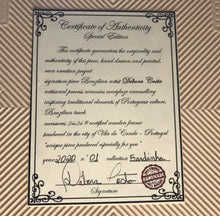 Certificate of Authenticity
Special Edition
This certificate guarantees the originality and
authenticity of this piece, hand drawn and painted,
own creation project
signature piece Brazilian artist Debora Costa
artisanal process ceramics recycling enamelling
inspiring traditional elements of Portuguese culture.
Brazilian touch
measures certified wooden frame
produced in the city of Vila do Conde - Portugal
"unique piece produced especially for you"
year 2020 nº 01 collection Sardinha
Debora Costa
Signature
HANDMADE